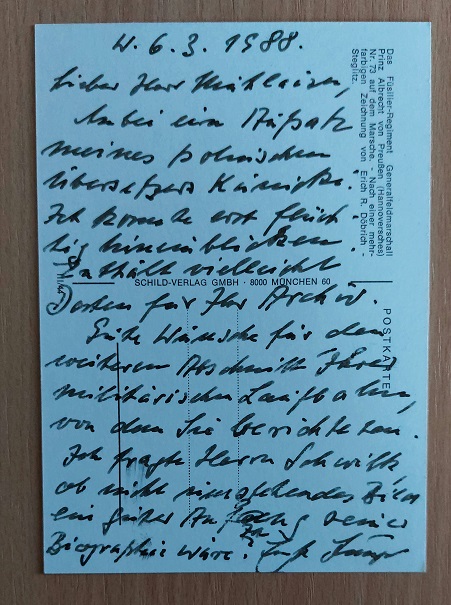 W. 6. 3. 1988.
Lieber Herr Mühleisen,
Anbei ein Aufsatz
meines polnischen
Übersetzers Kunicki.
Ich konnte erst flüch-
tig hineinblicken.
Enthält vielleicht
Daten für Ihr Archiv.
Gute Wünsche für den
weiteren Abschnitt Ihrer
militärischen Laufbahn,
von dem Sie berichteten.
Ich fragte Herrn Schwilk
ob nicht
ein guter Anfang seiner
Biographie wäre. Ernst Jünger
Das Füsilier-Regiment Generalfeldmarschall
Prinz Albrecht von Preußen (Hannoversches)
Nr. 73 auf dem Marsche. - Nach einer mehr-
farbigen Zeichnung von Erich R. Döbrich -
Steglitz.
SCHILD-VERLAG GMBH · 8000 MÜNCHEN 60
POSTKARTE